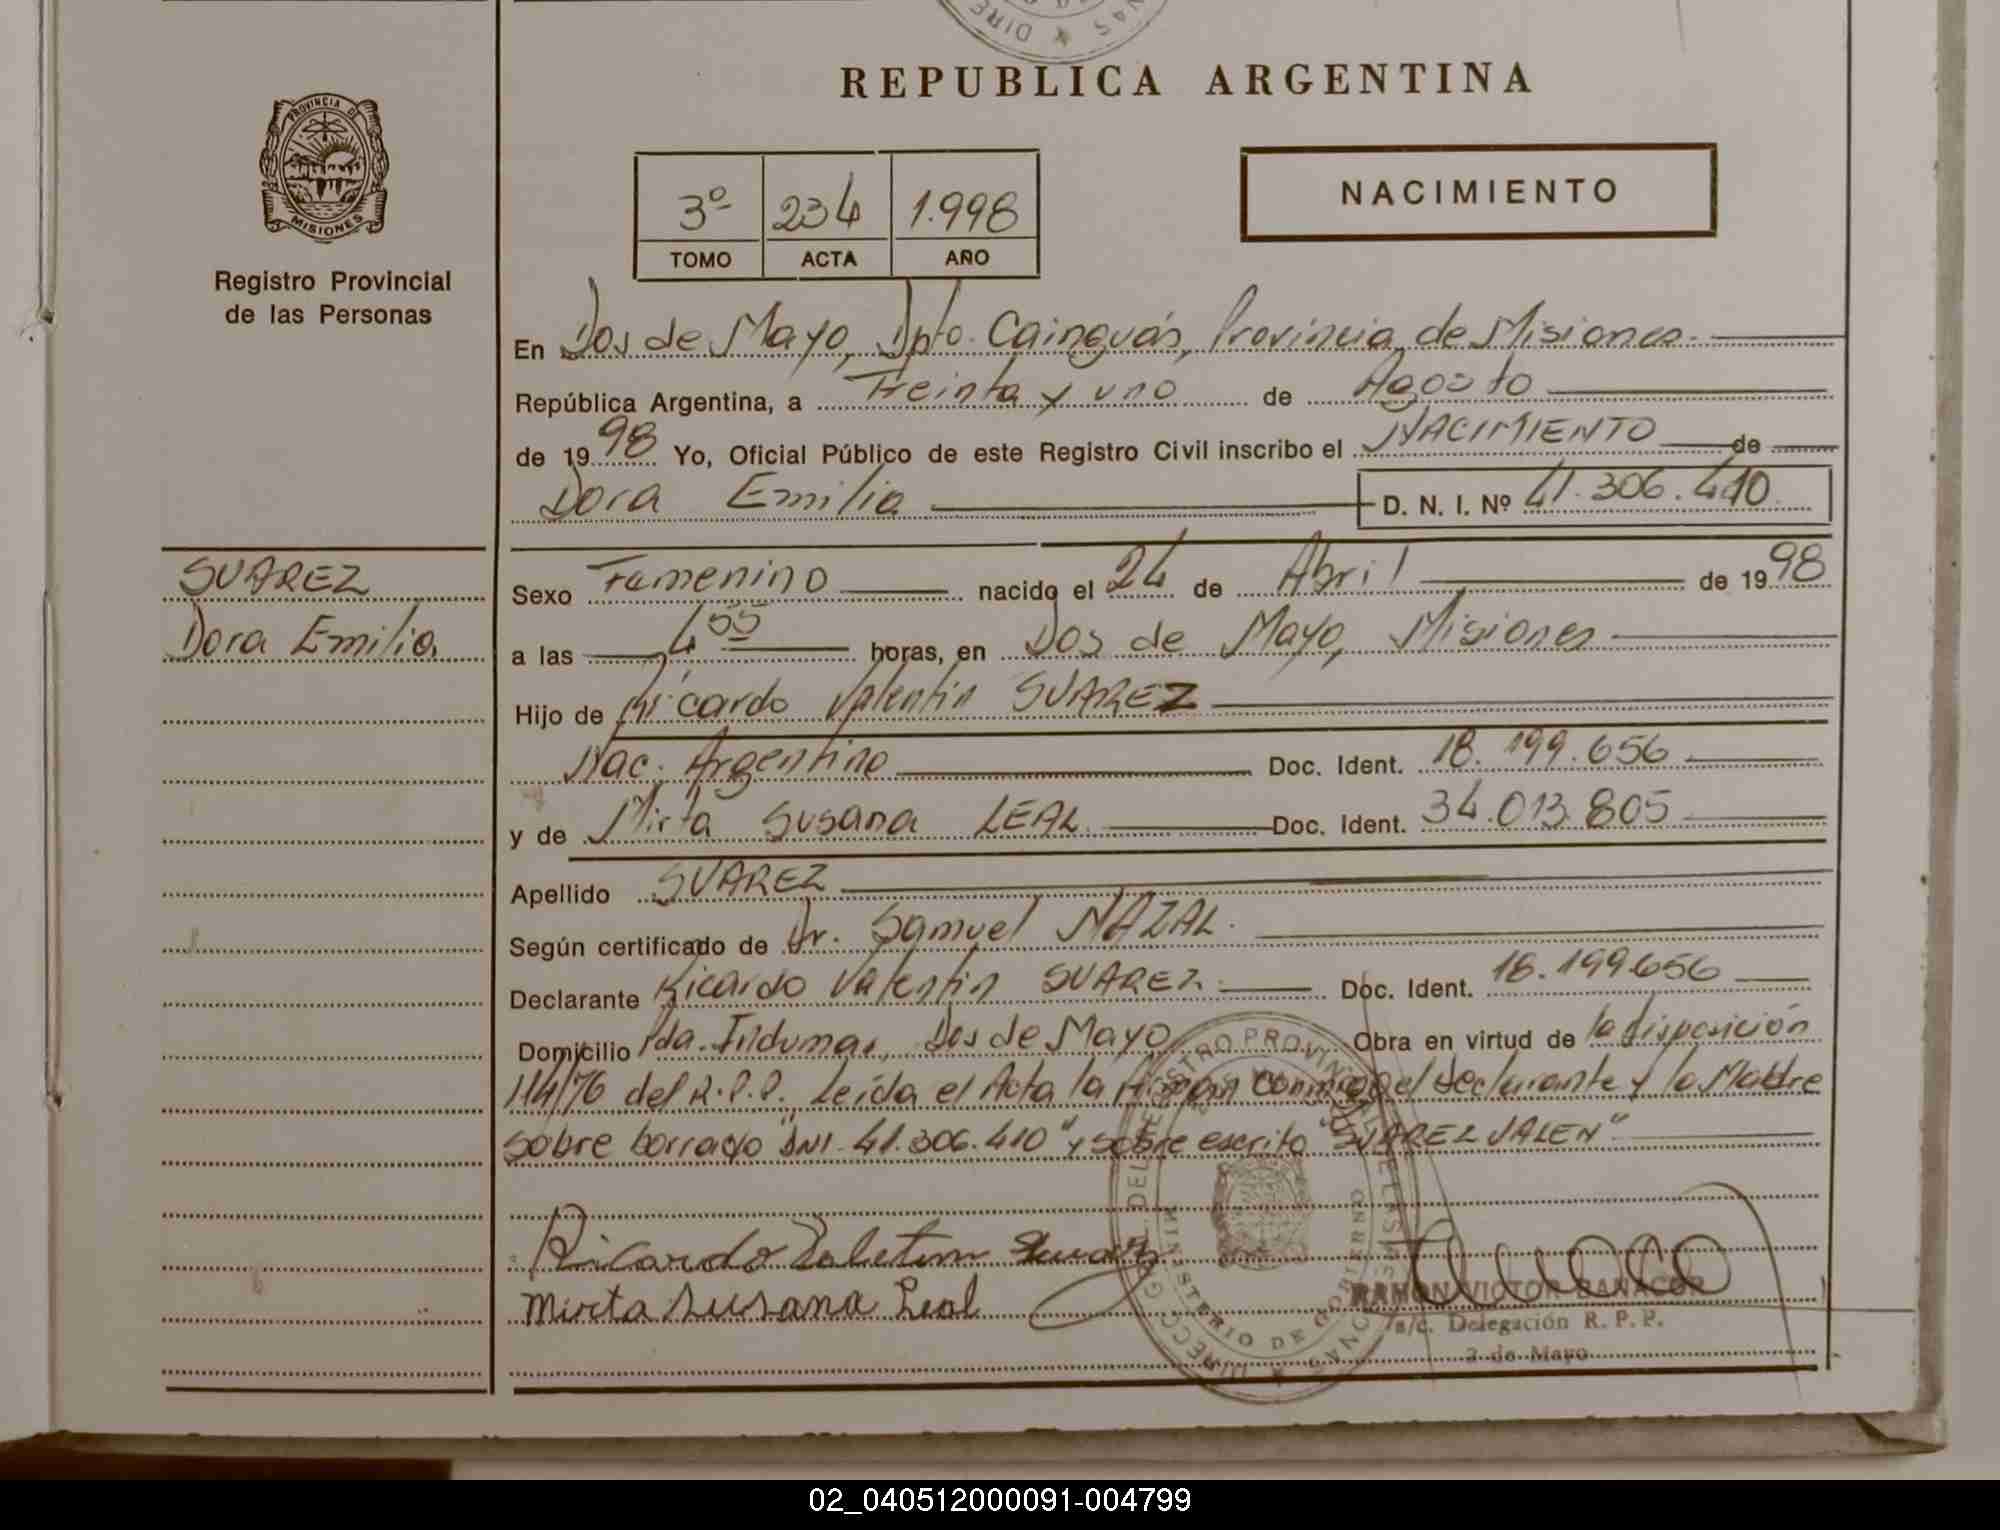 REPUBLICA ARGENTINA
PROVINCIA DE
MISIONES
Registro Provincial
de las Personas
3º 234 1.998
TOMO ACTA AÑO
NACIMIENTO
En Dos de Mayo, Dpto. Cainguás, Provincia de Misiones.
República Argentina, a Treinta y uno de Agosto
de 1998 Yo, Oficial Público de este Registro Civil inscribo el NACIMIENTO de
Dora Emilia D. N. I. Nº 41.306.410
SUAREZ
Dora Emilia
Sexo Femenino nacido el 24 de Abril de 1998
a las 4 55 horas, en Dos de Mayo, Misiones
Hijo de Ricardo Valentin SUAREZ
Nac. Argentino Doc. Ident. 18.199.656
y de Mirta Susana LEAL Doc. Ident. 34.013.805
Apellido SUAREZ
Según certificado de Dr. Samuel NAZAL.
Declarante Ricardo Valentin SUAREZ. Doc. Ident. 18.199656
Domicilio Pda. Indumar, Dos de Mayo Obra en virtud de la disposición
114/76 del R.P.P. Leída el Acta la firman conmigo el declarante y la Madre
Sobre borrado "DNI. 41.306.410" y sobre escrito "SUAREZ VALEN"
Ricardo Valetin Suarez
Mirta Susana Leal
RAMON VICTOR BANACOR
a/c. Delegación R. P. P.
2 de Mayo
MINISTERIO DE GOBIERNO
02_040512000091-004799